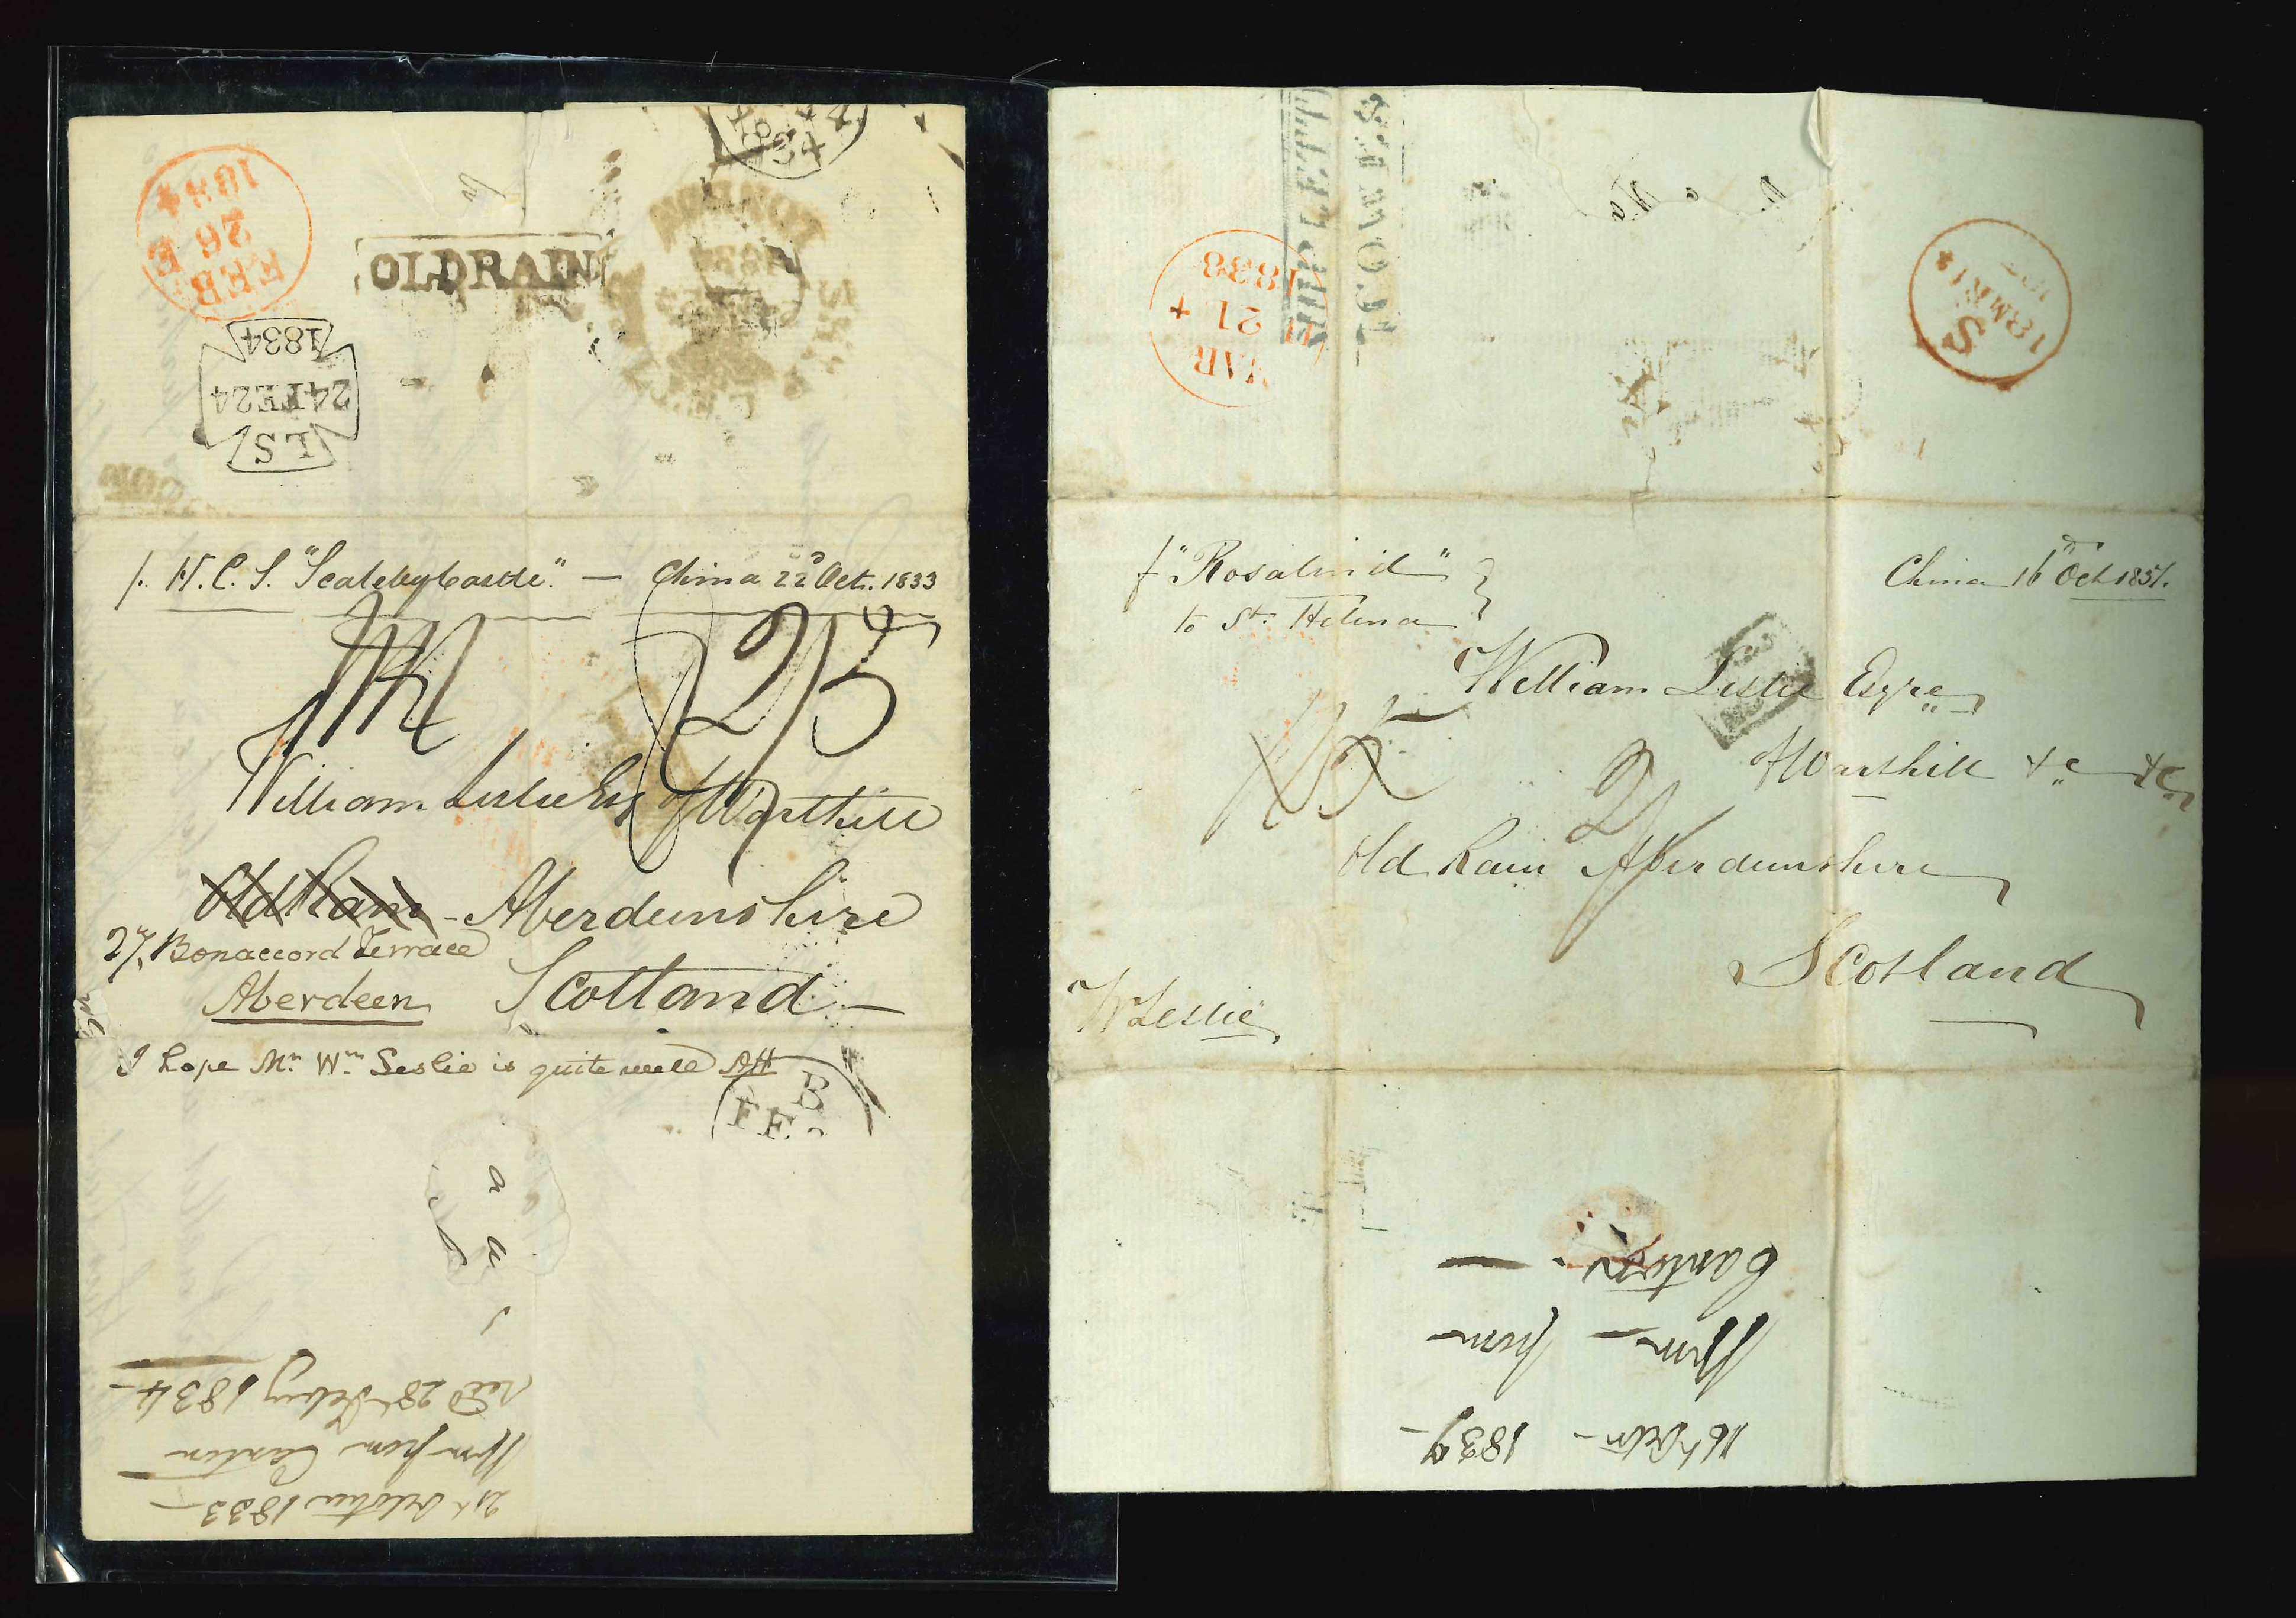 FEB
26 E
1834
OLDRAIN
LONDON
LS
24FE24
1834
p. H.C.S. "Scalebycastle" — China 22d Oct. 1833
2/5
William Leslie Esq of Warthill
Old Rain - Aberdeenshire
27, Bonaccord Terrace
Aberdeen Scotland —
I hope Mr. Wm. Leslie is quite well AH
B
FE
21st October 1833 —
Wm from Canton
recd 28th Feby 1834 —
SHIP LETTER
MAR
21
1838
S
18MR18
p "Rosalind"
to St. Helena
China 16th Oct 1837.
William Leslie Esqre
of Warthill &c &c
Old Rain Aberdeenshire
Scotland
WLeslie
16th Octr — 1837 —
Wm — from —
Canton —